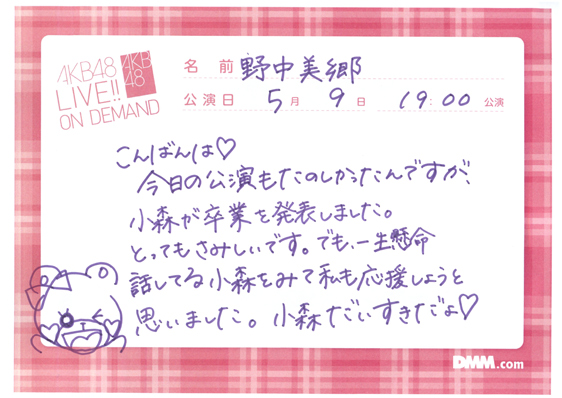 AKB48
LIVE!!
ON DEMAND
AKB
48
名 前 野中美郷
公演日 5月 9日 19:00 公演
こんばんは♡
今日の公演もたのしかったんですが、
小森が卒業を発表しました。
とってもさみしいです。でも、一生懸命
話してる小森をみて私も応援しようと
思いました。小森だいすきだよ♡
DMM.com